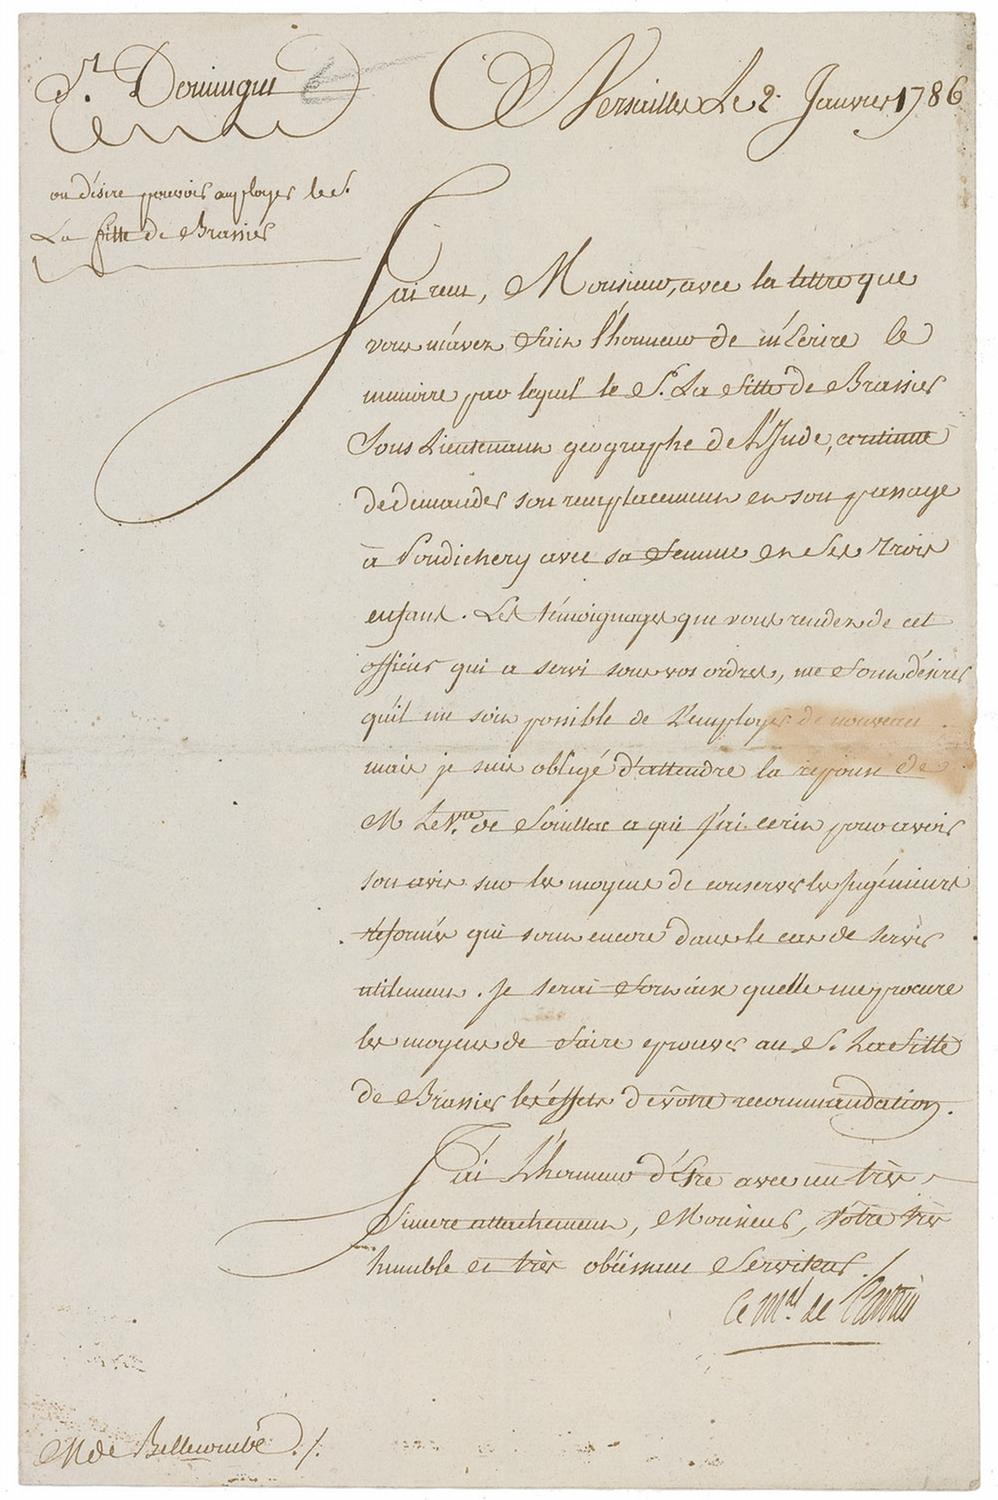 St. Domingue
Versailles Le 2. Janvier 1786
on désire pouvoir employer le S.
La fitte de Brassier
J'ai reçu, Monsieur, avec la lettre que
vous m'avez fait l'honneur de m'écrire le
mémoire par lequel le S. La fitte de Brassier
Sous Lieutenant géographe de l'Inde, continue
de demander son remplacement et son passage
à Pondichery avec sa femme et ses trois
enfans. Les témoignages que vous rendez de cet
officier qui a servi sous vos ordres, me font désirer
qu'il me soit possible de l'employer de nouveau
mais je suis obligé d'attendre la réponse de
M le V.te de Souillac a qui j'ai écrit pour avoir
son avis sur les moyens de conserver les Ingénieurs
réformés qui sont encore dans le cas de servir
utilement. Je serai fort aise quelle me procure
les moyens de faire eprouver au S. La fitte
de Brassier les éffets de votre recommandation.
J'ai l'honneur d'être avec un très
sincere attachement, Monsieur, votre très
humble et très obéissant Serviteur.
Le M.al de Castries
M de Bellecombe ./.